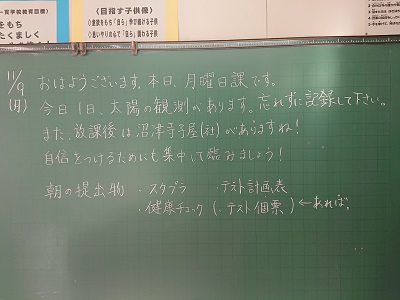 一貫学校教育目標)
をもち
たくましく
〈目指す子供像〉
◇意欲をもち「自ら」学び続ける子供
◇思いやりのもてる「自ら」関わる子供
11/9
(月)
おはようございます。本日、月曜日課です。
今日1日、太陽の観測があります。忘れずに記録して下さい。
また、放課後は沼津寺子屋(社)がありますね!
自信をつけるためにも集中して臨みましょう!
朝の提出物 ・スタプラ ・テスト計画表
・健康チェック (・テスト個票) ←あれば。